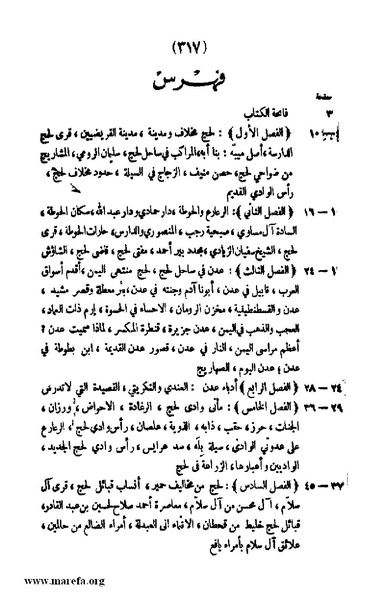 (٣١٧)
فهرس
صفحة
٣ فاتحة الكتاب
١٥ (الفصل الأول) : لحج مخلاف ومدينة ، مدينة القريضيين ، قرى لحج
الدارسة، أصل مبيبه : بنا أبه، المراكب في ساحل لحج ، سليمان الرومي، المشاريج
من ضواحي لحج، حصن منيف ، الزجاج في السيلة ، حدود مخلاف لحج ،
رأس الوادي القديم
١ – ١٦ (الفصل الثاني): الرعارع والحوطة ، دار حمادي ودار عبدالله، سكان الحوطة،
السادة آل مساوي ، صبيحة رجب ، المنصوري والدارس، حارات الحوطة ، قرى
لحج ، الشيخ سفيان الزيادي، مجدد بير أحمد ، مفتي لحج ، قاضي لحج ، الشاؤش
١ – ٢٤ (الفصل الثالث) : عدن في ساحل لحج ، لحج منتهى اليمن، أقدم أسواق
العرب ، قابيل في عدن ، أبونا آدم وجنته في عدن ، بئر معطلة وقصر مشيد ،
عدن والقسطنطينية ، مخزن الرومان ، الاحساء في الحسوة ، إرم ذات العماد،
العجب والذهب في اليمن ، عدن جزيرة ، قنطرة المكسر ، لماذا سميت عدن ؟
أعظم مراسى اليمن، النار في عدن ، قصور عدن القديمة ، ابن بطوطة في
عدن ؛ عدن اليوم ، الصهاريج
٢٤ – ٢٨ (الفصل الرابع) أدباء عدن : العندي والتكريتي ، القصيدة التي لاتدرس
٢٩ – ٣٦ (الفصل الخامس) : مأتى وادي لحج ، الرغادة ، الاحواض ، ورزان ،
الجنات ، حرز ، حقب ، ذابه ، القدوية ، حلصان ، رأس وادي لحج ، الرعارع
على عدوتي الوادي، سيلة بِلَه ، سد عرايس ، رأس وادي لحج الجديد،
الواديين وأعبارها ، الزراعة في لحج
٣٧ – ٤٥ (الفصل السادس) : لحج من مخاليف حمير ، أنساب قبائل لحج ، قرى آل
سلام ، آل محسن من آل سلام ، معاصرة أحمد صلاح لحسين بن عبد القادر،
قبائل لحج خليط من قحطان ، الانتماء الى العبدلة ، أمراء الضالع من حالمين ،
علائق آل سلام بأمراء يافع
www.marefa.org